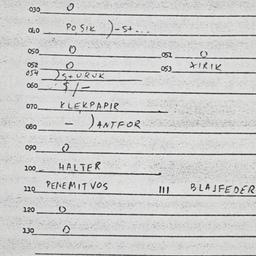 030 0
040 POSIK )-5+...
050 0 051 0
052 0 053 XIRIK
054 )5+URUK
060 $/-
070 KLEKPAPIR
080 - )ANTFOR
090 0
100 HALTER
110 PENEMITVOS 111 BLAJFEDER
120 0
130 0